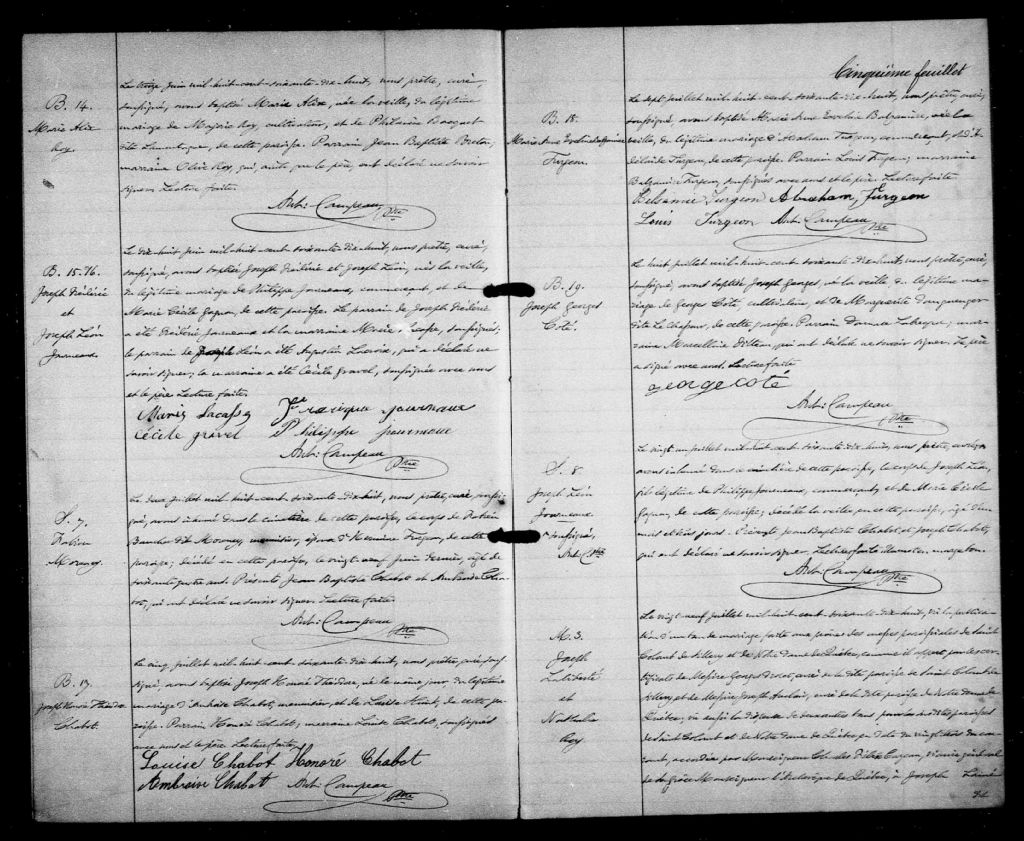 B. 14.
Marie Alix
Roy.
Le treize juin mil-huit-cent-soixante-dix-huit, nous prêtre, curé,
soussigné, avons baptisé Marie Alix, née la veille, du légitime
mariage de Majoric Roy, cultivateur, et de Philomène
dite de cette paroisse. Parrain Jean Baptiste Breton,
marraine Olive Roy, qui, ainsi que le père, ont déclaré ne savoir
signer. Lecture faite.
Ant: Campeau
Ptre
B. 15-16.
Joseph Frédéric
et
Joseph Léon
Journeaux.
Le dix-huit juin mil-huit-cent-soixante-dix-huit, nous prêtre, curé,
soussigné, avons baptisé Joseph Frédéric et Joseph Léon, nés la veille,
du légitime mariage de Philippe Journeaux, commerçant, et de
Marie Cécile de cette paroisse. Le parrain de Joseph Frédéric
a été Frédéric Journeaux et la marraine Marie soussignés;
le parrain de Joseph Léon a été Augustin Lacroix, qui a déclaré ne
savoir signer; la marraine a été Cécile Gravel, soussignée avec nous
et le père. Lecture faite.
cécile gravel
Philippe journeaux
Ant: Campeau
Ptre
S. 7.
Morency.
Le deux juillet mil-huit-cent-soixante-dix-huit, nous, prêtre, curé soussi-
gné, avons inhumé dans le cimetière de cette paroisse, le corps de
dit Morency, menuisier, époux d' de cette
paroisse; décédé en cette paroisse, le vingt-neuf juin dernier, âgé de
soixante quatre ans. Présents Jean Baptiste Chabot et Cha-
bot, qui ont déclaré ne savoir signer. Lecture faite.
Ant: Campeau
Ptre
B. 17
Joseph Honoré Théodore
Chabot.
Le cinq juillet mil-huit-cent-soixante-dix-huit, nous, prêtre, curé, sous-
signé, avons baptisé Joseph Honoré Théodore, né le même jour, du légitime
mariage d'Ambroise Chabot, menuisier, et de Louise de cette pa-
roisse. Parrain Honoré Chabot, marraine Louise Chabot, soussignés
avec nous et le père. Lecture faite.
Louise Chabot Honoré Chabot
Ambroise Chabot Ant: Campeau
Ptre
Cinquième feuillet
B. 18.
Turgeon.
Le sept juillet mil-huit-cent-soixante-dix-huit, nous prêtre, curé,
soussigné, avons baptisé née la
veille, du légitime mariage d'Abraham Turgeon, commerçant, et d'A-
délaïde Turgeon, de cette paroisse. Parrain Louis Turgeon; marraine
Turgeon, soussignés avec nous et le père. Lecture faite.
Turgeon Abraham, Turgeon
Louis Turgeon Ant: Campeau
Ptre
B. 19.
Joseph Georges
Coté.
Le huit juillet mil-huit-cent-soixante-dix-huit, nous prêtre, curé,
soussigné, avons baptisé Joseph Georges, né la veille, du légitime ma-
riage de George Coté, cultivateur, et de Marguerite
de cette paroisse. Parrain mar-
raine Marcelline qui ont déclaré ne savoir signer. Le père
a signé avec nous. Lecture faite
george coté
Ant: Campeau
Ptre
S. 8
Joseph Léon
Journeaux
soussigné,
Ant. C. Ptre
Le vingt-un juillet mil-huit-cent-soixante-dix-huit, nous prêtre,
avons inhumé dans le cimetière de cette paroisse, le corps de Joseph Léon,
fils légitime de Philippe Journeaux, commerçant, et de Marie Cécile
de cette paroisse; décédé la veille en cette paroisse, âgé d'un
mois et trois jours. Présents Jean Baptiste Chabot et Joseph Chabot,
qui ont déclaré ne savoir signer. Lecture faite marge bon.
Ant: Campeau
Ptre
M. 3.
Joseph
Laliberté
et
Nathalie
Roy
Le vingt-neuf juillet mil-huit-cent-soixante-dix-huit, vu la publica-
tion d'un ban de mariage faite aux prônes des messes paroissiales de Saint
Colomb de Sillery et de Notre Dame de Québec, comme il appert par les cer-
tificats de Messire George Drolet, curé de la dite paroisse de Saint Colomb de
Sillery et de Messire Joseph Auclair, curé de la dite paroisse de Notre Dame de
Québec; vu aussi la dispense de deux autres bans pour les dites paroisses
de Saint Colomb et de Notre Dame de Québec, en date du vingt-trois du cou-
rant, accordée par Monseigneur vicaire général
de sa Grâce Monseigneur l'Archevêque de Québec, à Joseph